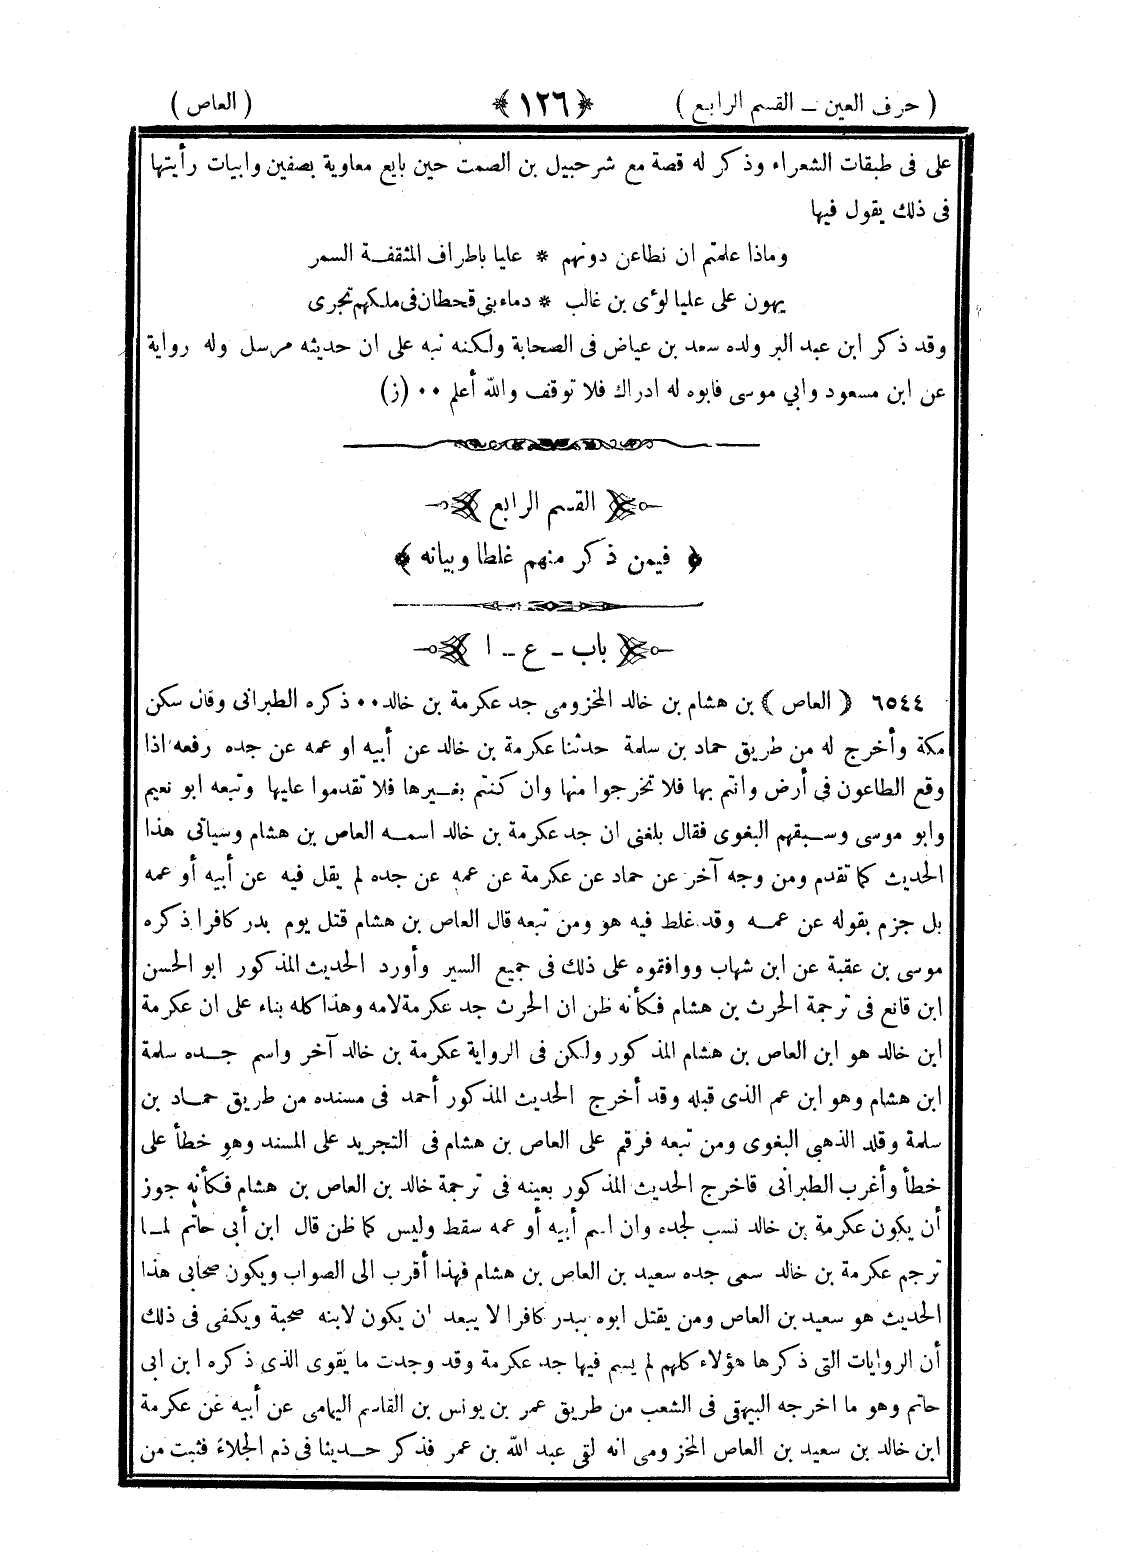 ( حرف العين ــ القسم الرابع ) ﴿ ١٢٦ ﴾ ( العاص )
على فى طبقات الشعراء وذكر له قصة مع شرحبيل بن الصمت حين بايع معاوية بصفين وابيات رأيتها
فى ذلك يقول فيها
وماذا علمتم ان نطاعن دونهم * عليا باطراف المثقفة السمر
يهون على عليا لوٴى بن غالب * دماء بنى قحطان فى ملكهم تجرى
وقد ذكر ابن عبد البر ولده سعد بن عياض فى الصحابة ولكنه نبه على ان حديثه مرسل وله رواية
عن ابن مسعود وابي موسى فابوه له ادراك فلا توقف والله أعلم ٠٠ (ز)
القسم الرابع
﴿ فيمن ذكر منهم غلطا وبيانه ﴾
باب ــ ع ــ ا
٦٥٤٤ ﴿ العاص ﴾ بن هشام بن خالد المخزومى جد عكرمة بن خالد ٠٠ ذكره الطبرانى وقال سكن
مكة وأخرج له من طريق حماد بن سلمة حدثنا عكرمة بن خالد عن أبيه او عمه عن جده رفعه اذا
وقع الطاعون فى أرض وانتم بها فلا تخرجوا منها وان كنتم بغيرها فلا تقدموا عليها وتبعه ابو نعيم
وابو موسى وسبقهم البغوى فقال بلغنى ان جد عكرمة بن خالد اسمه العاص بن هشام وسياتى هذا
الحديث كما تقدم ومن وجه آخر عن حماد عن عكرمة عن عمه عن جده لم يقل فيه عن أبيه أو عمه
بل جزم بقوله عن عمه وقد غلط فيه هو ومن تبعه قال العاص بن هشام قتل يوم بدر كافرا ذكره
موسى بن عقبة عن ابن شهاب ووافقوه على ذلك فى جميع السير وأورد الحديث المذكور ابو الحسن
ابن قانع فى ترجمة الحرث بن هشام فكأنه ظن ان الحرث جد عكرمة لامه وهذا كله بناء على ان عكرمة
ابن خالد هو ابن العاص بن هشام المذكور ولكن فى الرواية عكرمة بن خالد آخر واسم جده سلمة
ابن هشام وهو ابن عم الذى قبله وقد أخرج الحديث المذكور أحمد فى مسنده من طريق حماد بن
سلمة وقلد الذهبى البغوى ومن تبعه فرقم على العاص بن هشام فى التجريد على المسند وهو خطأ على
خطأ وأغرب الطبرانى فاخرج الحديث المذكور بعينه فى ترجمة خالد بن العاص بن هشام فكأنه جوز
أن يكون عكرمة بن خالد نسب لجده وان اسم أبيه أو عمه سقط وليس كما ظن قال ابن أبى حاتم لما
ترجم عكرمة بن خالد سمى جده سعيد بن العاص بن هشام فهذا أقرب الى الصواب ويكون صحابى هذا
الحديث هو سعيد بن العاص ومن يقتل ابوه ببدر كافرا لا يبعد ان يكون لابنه صحبة ويكفى فى ذلك
أن الروايات التى ذكرها هؤلاء كلهم لم يسم فيها جد عكرمة وقد وجدت ما يقوى الذى ذكره ابن ابى
حاتم وهو ما اخرجه البيهقى فى الشعب من طريق عمر بن يونس بن القاسم اليمامى عن أبيه عن عكرمة
ابن خالد بن سعيد بن العاص المخزومى انه لقى عبد الله بن عمر فذكر حديثا فى ذم الجلاء فثبت من